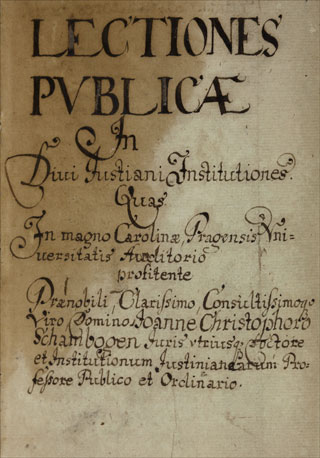 LECTIONES
PVBLICÆ
In
Divi Justiani Institutiones.
Quas
In magno Carolinæ, Pragensis Vni=
uersitatis Auditorio
profitente
Prænobili, Clarissimo, Consultissimoq
Viro Domino Joanne Christophoro
Schambogen Juris utriusq Doctore
et Institutionum Justinianearum Pro-
fessore Publico et Ordinario.